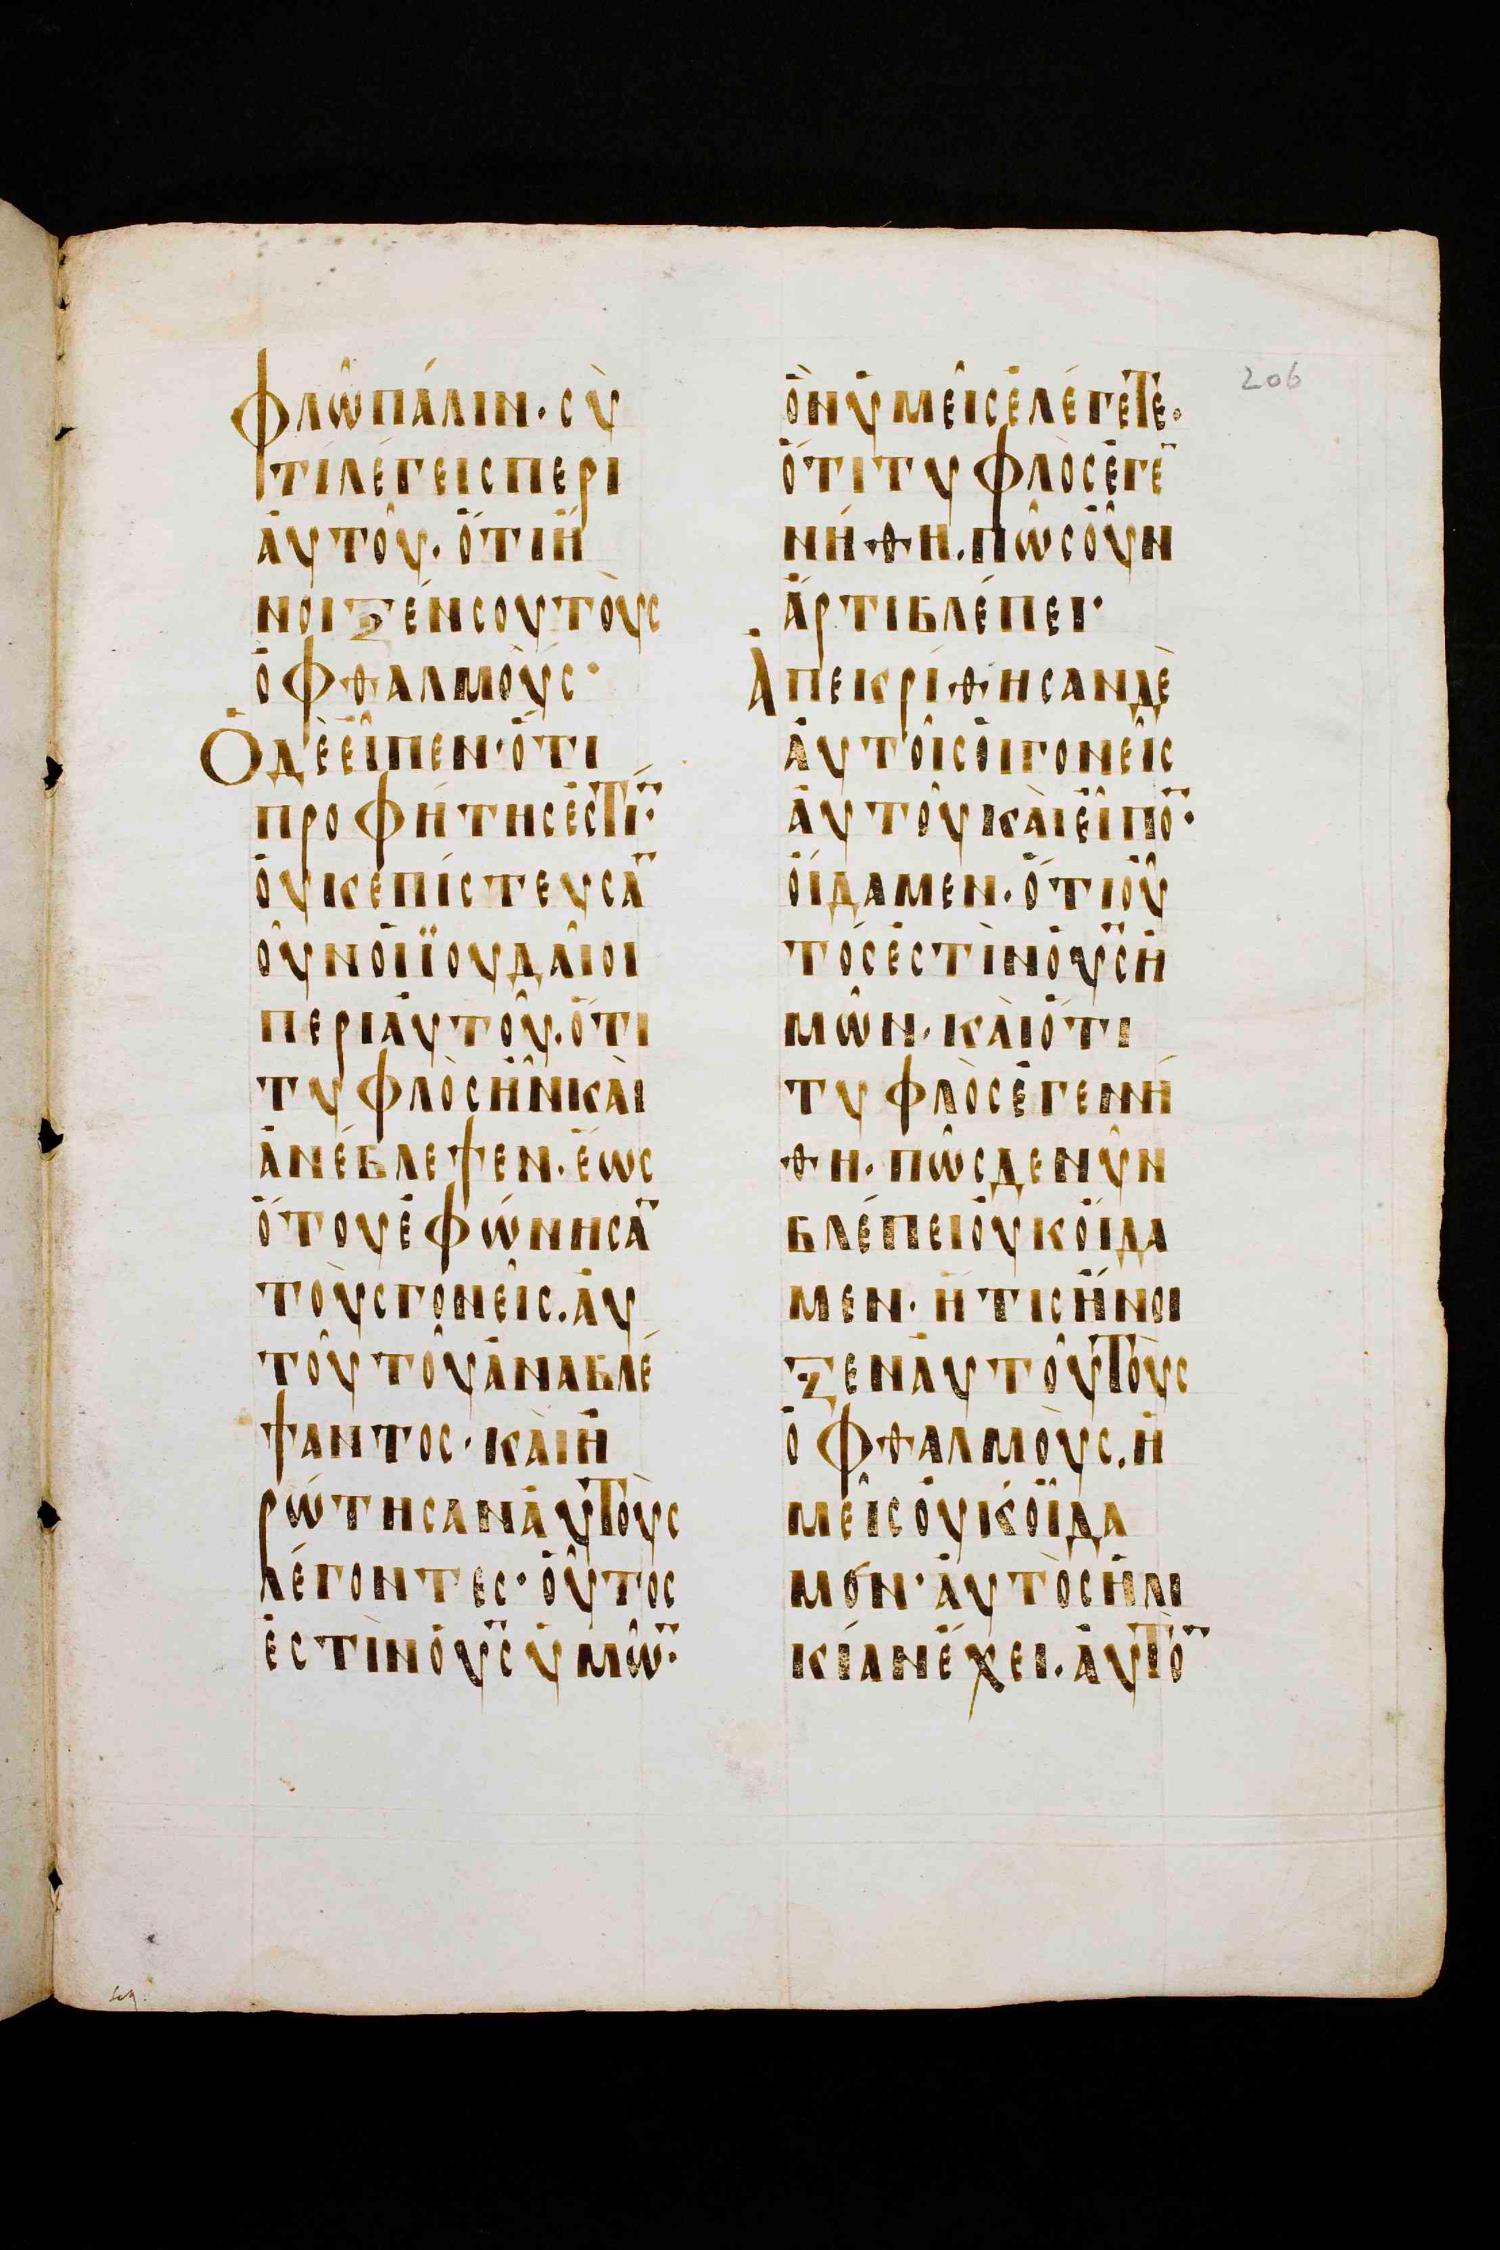 206
φλῶ πάλιν· σὺ
τί λέγεις περὶ
ἀυτοῦ· ὅτι ἤ
νοιξέν σου τοὺς
ὀφθαλμοὺς·
Ὁ δὲ εἶπεν· ὅτι
προφήτης ἐστί̄·
ὀυκ ἐπίστευσᾱ
οὖν ὁι ἰουδαῖοι
περὶ ἀυτοῦ. ὅτι
τυφλὸς ἦν κὰι
ἀνέβλεψεν. ἕως
ὅτου ἐφώνησᾱ
τοὺς γονεῖς. ἀυ
τοῦ τοῦ ἀναβλέ
ψαντος· κὰι ἠ
ρώτησαν ἀυτοὺς
λέγοντες· οὗτος
ἐστὶν ὁ υ̅ς̅ ὑμῶ̄·
ὃν ὑμεῖς ἐλέγετε·
ὅτι τυφλὸς ἐγε̄
νήθη. πῶς οὖν
ἄρτι βλέπει·
Ἀπεκρίθησαν δὲ
ἀυτοῖς ὁι γονεῖς
ἀυτοῦ κὰι εἶπο̄·
ὄιδαμεν· ὅτι οὗ
τός ἐστὶν ὁ υ̅ς̅ ἡ
μῶν· κὰι ὅτι
τυφλὸς ἐγενή
θη· πῶς δε νῦν
βλέπει ὀυκ ὄιδα
μεν· ἢ τίς ἤνοι
ξεν ἀυτοῦ τοὺς
ὀφθαλμοὺς. ἡ
μεῖς ὀυκ ὄιδα
μὲν· ἀυτὸς ἡλι
κίαν ἔχει. ἀυτὸ̄